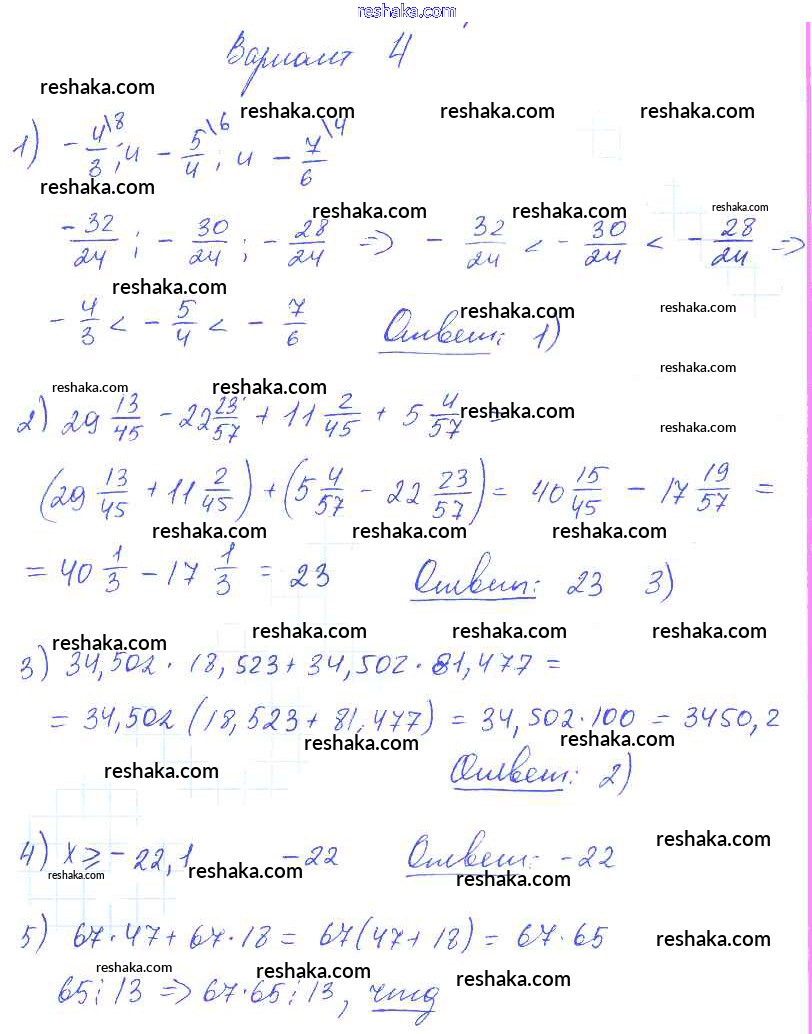 reshaka.com
Вариант 4
reshaka.com
reshaka.com reshaka.com reshaka.com
1) -4/3\8; и -5/4\6; и -7/6\4
reshaka.com
reshaka.com reshaka.com reshaka.com
-32/24; -30/24; -28/24 => -32/24 < -30/24 < -28/24 =>
reshaka.com
reshaka.com reshaka.com
-4/3 < -5/4 < -7/6 Ответ: 1)
reshaka.com
reshaka.com reshaka.com
reshaka.com
2) 29 13/45 - 22 23/57 + 11 2/45 + 5 4/57 =
reshaka.com
(29 13/45 + 11 2/45) + (5 4/57 - 22 23/57) = 40 15/45 - 17 19/57 =
reshaka.com reshaka.com reshaka.com
= 40 1/3 - 17 1/3 = 23 Ответ: 23 3)
reshaka.com reshaka.com reshaka.com reshaka.com
3) 34,502 · 18,523 + 34,502 · 81,477 =
= 34,502 (18,523 + 81,477) = 34,502 · 100 = 3450,2
reshaka.com reshaka.com
reshaka.com
Ответ: 2)
reshaka.com
4) x ⩾ -22,1 -22 Ответ: -22
reshaka.com reshaka.com reshaka.com
5) 67 · 47 + 67 · 18 = 67 (47 + 18) = 67 · 65
reshaka.com
reshaka.com reshaka.com reshaka.com
65 ⋮ 13 => 67 · 65 ⋮ 13, чтд